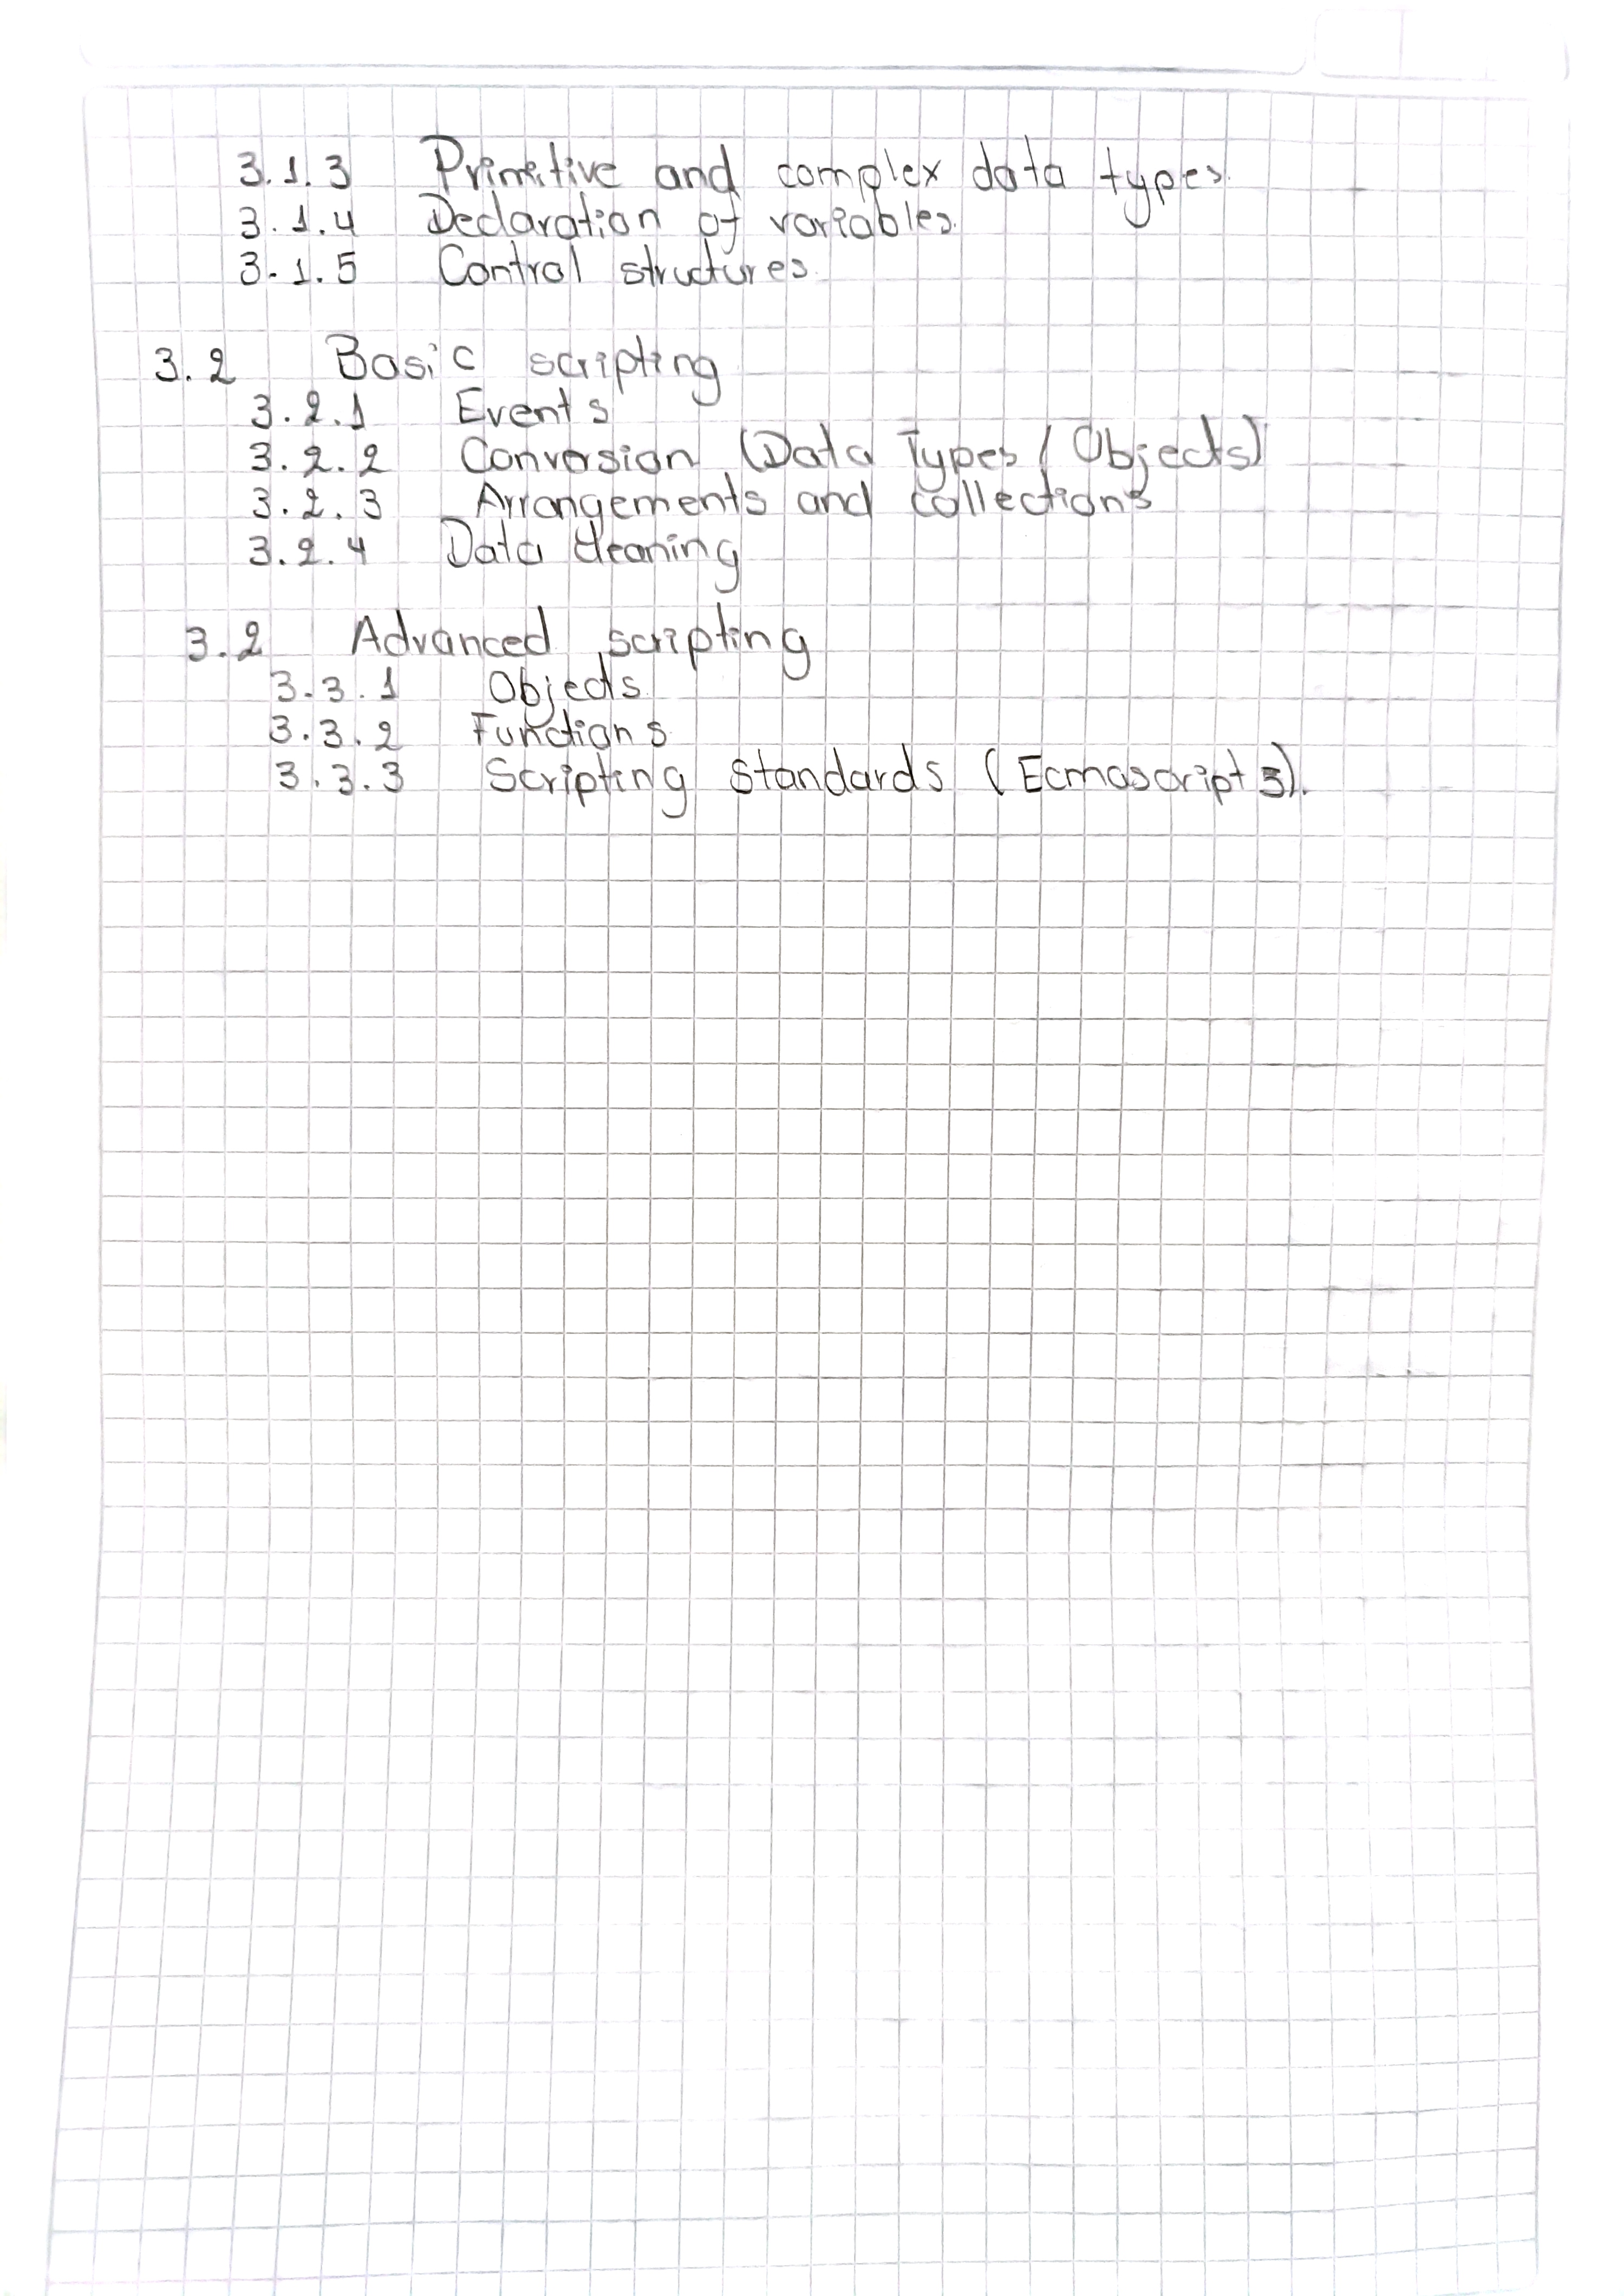 3.1.3 Primitive and complex data types.
3.1.4 Declaration of variables.
3.1.5 Control structures.
3.2 Basic scripting
3.2.1 Events
3.2.2 Conversion (Data Types / Objects)
3.2.3 Arrangements and collections
3.2.4 Data cleaning
3.2 Advanced scripting
3.3.1 Objects.
3.3.2 Functions
3.3.3 Scripting standards (Ecmascript 5).